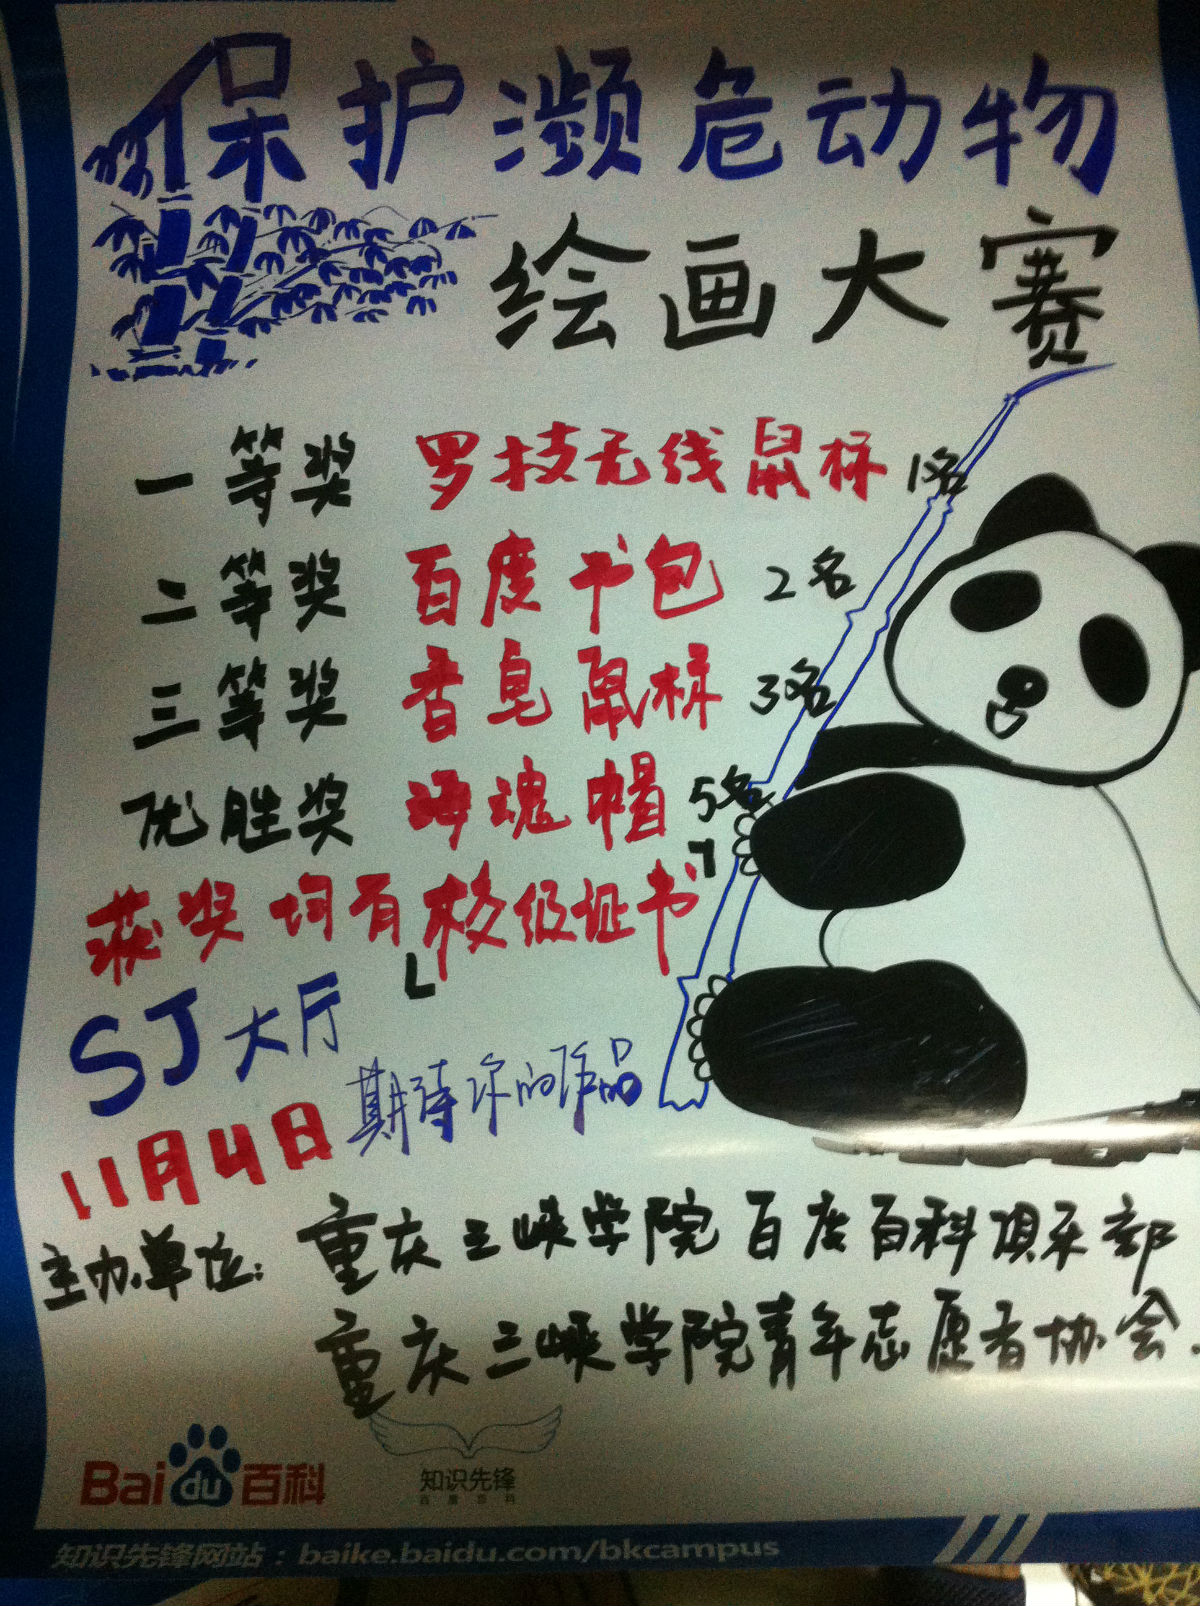 保护濒危动物
绘画大赛
一等奖 罗技无线鼠标 1名
二等奖 百度书包 2名
三等奖 香皂鼠标 3名
优胜奖 海魂帽 5名
获奖均有「校级证书」
SJ大厅
期待你的作品
11月4日
主办单位：重庆三峡学院百度百科俱乐部
重庆三峡学院青年志愿者协会.
Bai du 百科
知识先锋
百度百科
知识先锋网站：baike.baidu.com/bkcampus